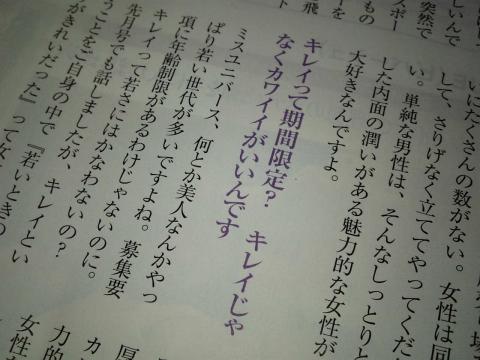 しいんで
突然で
スポー
ーを
もの
飛
ト
いにたくさんの数がない。女性は同
して、さりげなく立ててやってくだ
い。単純な男性は、そんなしっとりと
した内面の潤いがある魅力的な女性が
大好きなんですよ。
キレイって期間限定？　キレイじゃ
なくカワイイがいいんです
ミスユニバース、何とか美人なんかやっ
ぱり若い世代が多いですよね。募集要
項に年齢制限があるわけじゃないのに。
キレイって若さにはかなわないの？
先月号でも話しましたが、キレイとい
うことをご自身の中で『若いときの
がきれいだった』って女
女性
力的
カ
厚